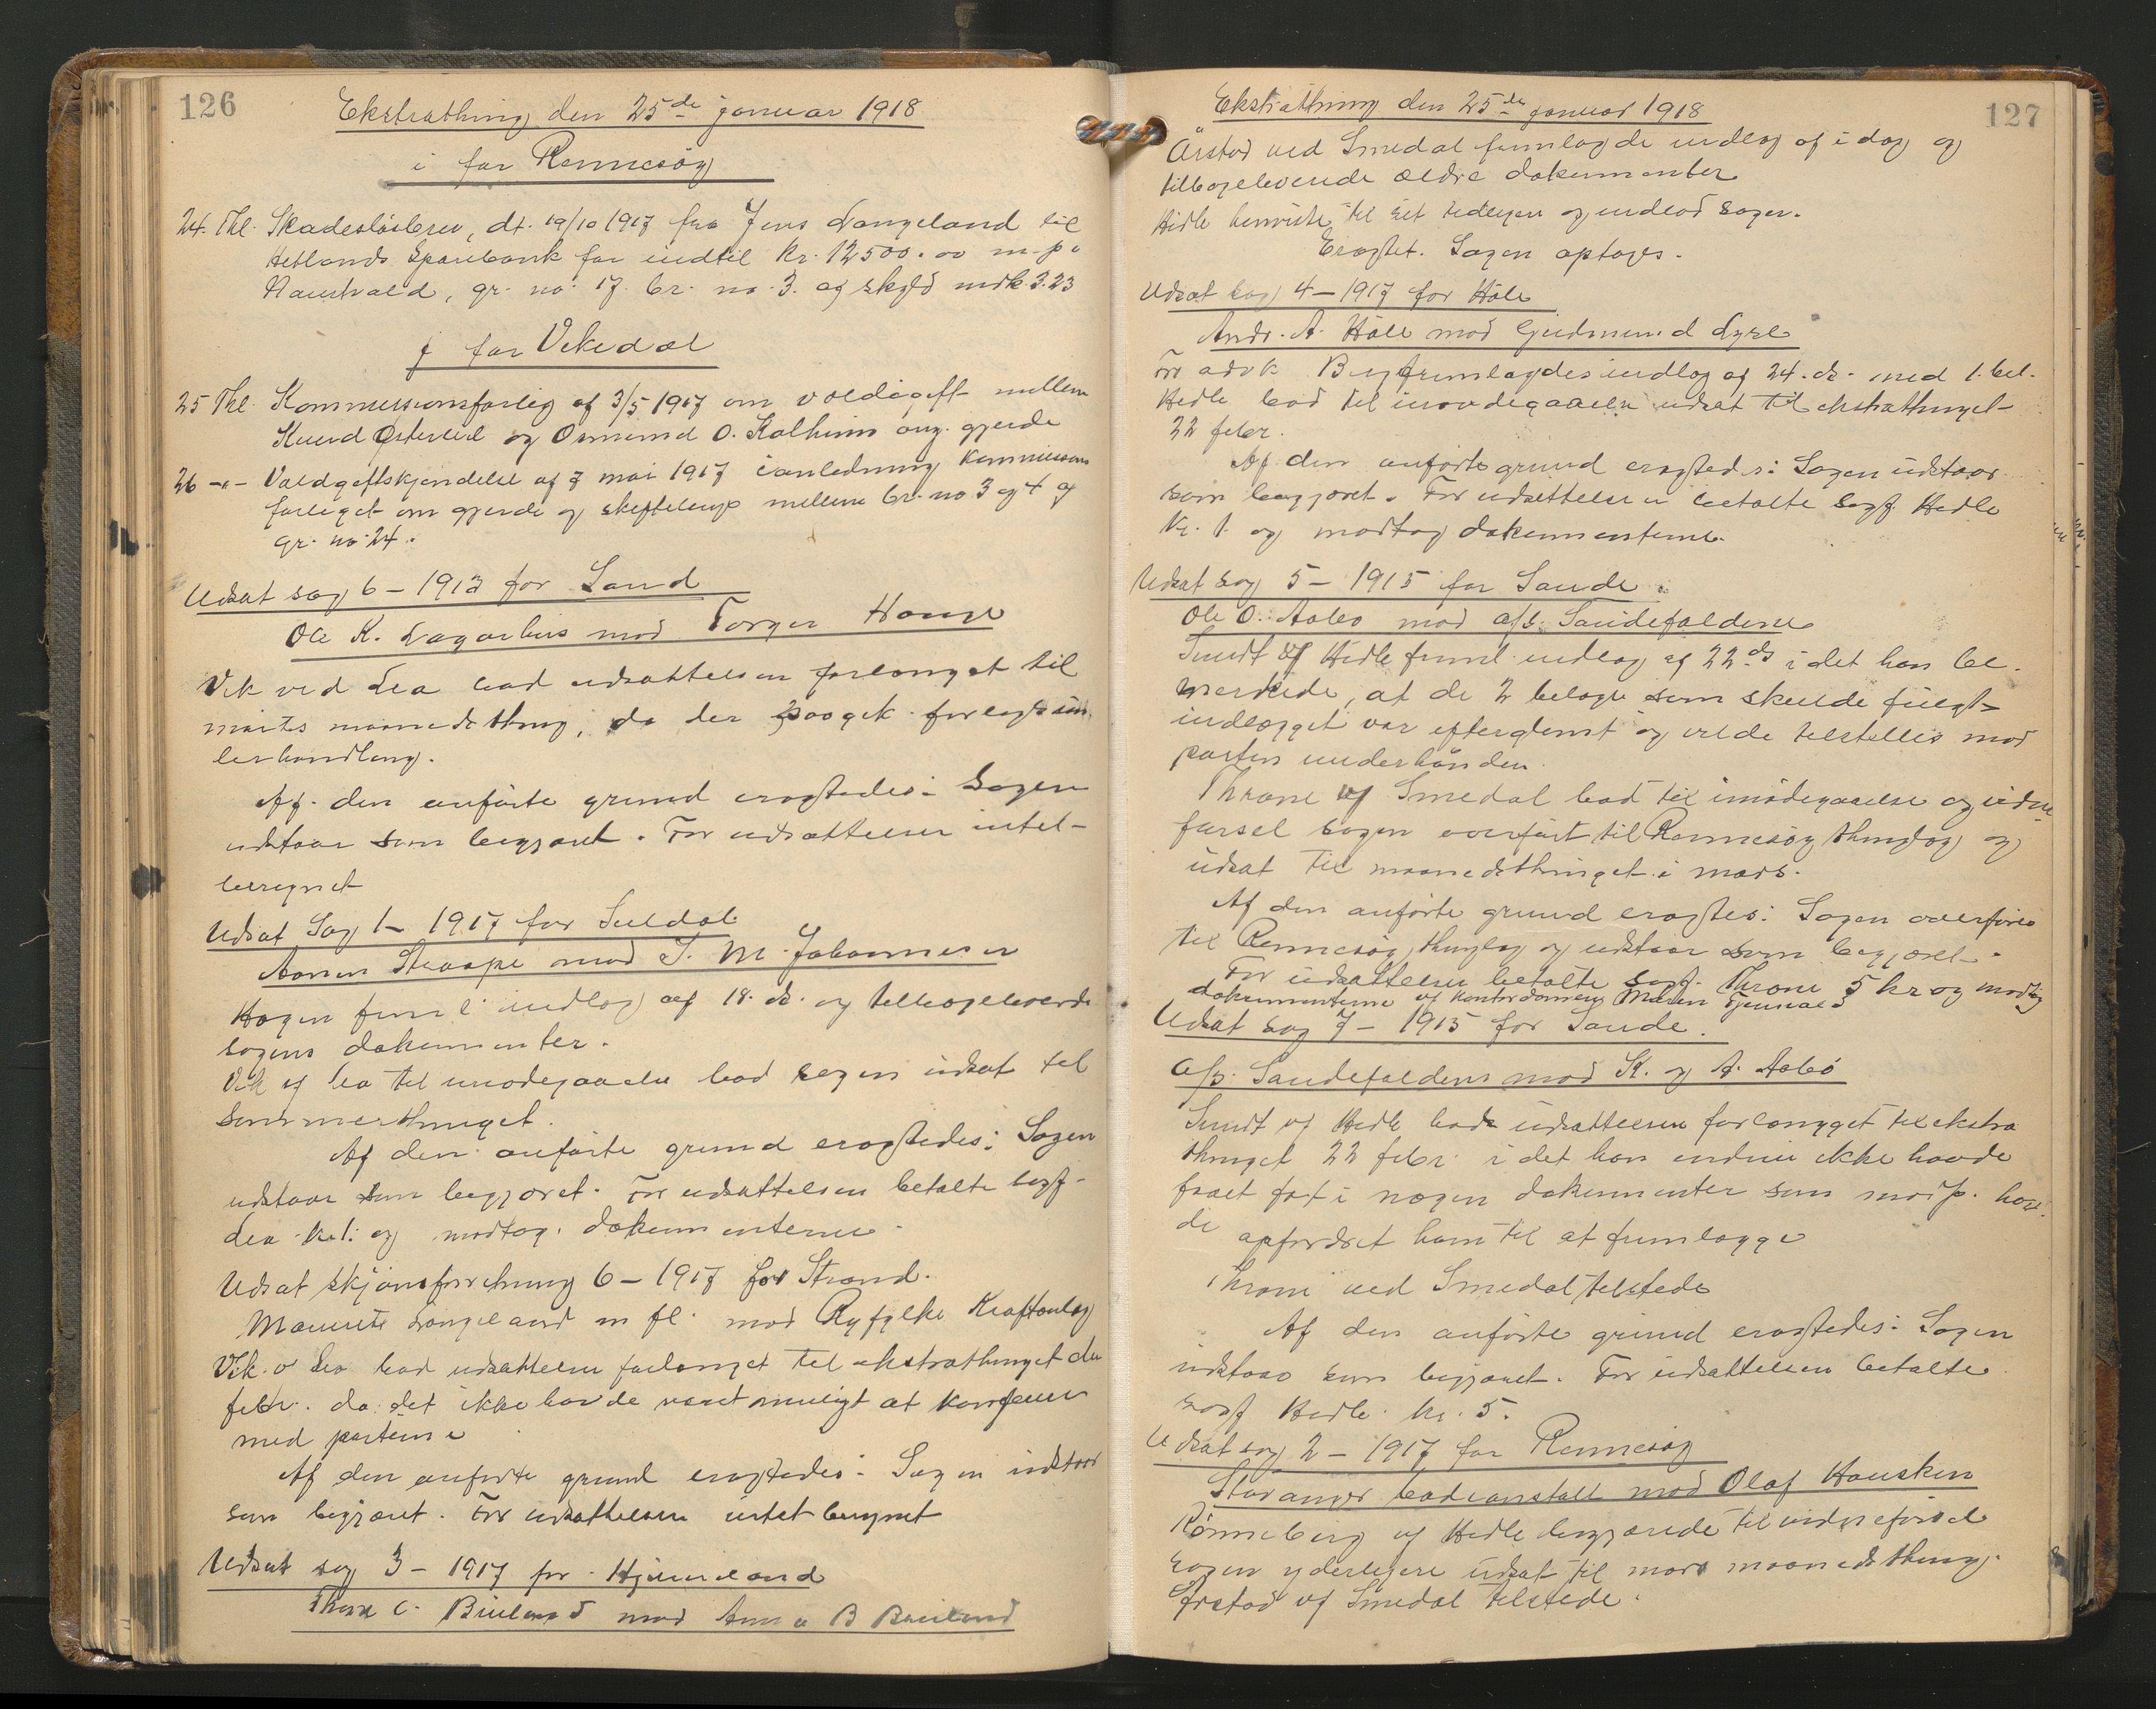 126
Ekstrathing den 25de januar 1918
i for Rennesøy
24. Thl. Skadesløsbrev, dt. 19/10 1917 fra Jens Langeland til
Hetlands Sparebank for indtil kr. 12500.00 m. p. i
gr. no. 17 br. no. 3. og skyld mrk 3.23
j for Vikedal
25 Thl. Kommissionsforlig af 3/5 1917 om voldgift mellem
Knud og Osmund O. Kalheim ang. gjerde
26 -"- Voldgiftskjendelse af 7 mai 1917 i anledning Kommissions
forliget om gjerde og mellem br. no 3 og 4 af
gr. no 24.
Udsat sag 6 - 1913 for Sand
Ole K. Lagarhus mod Torger
Vik ved Lea bad udsættelsen forlænget til
marts maanedsthing, da der paagik forligsun
derhandling.
Af den anførte grund eragtedes: Sagen
udstaar som begjæret. For udsættelsen intet
beregnet
Udsat Sag 1 - 1917 for Suldal
mod J. M. Johannesen
Hagen freml. indlæg af 18. ds. og tilbageleverde
sagens dokumenter.
Vik vf Lea til imødegaaelse bad sagen udsat til
sommerthinget.
Af den anførte grund eragtedes: Sagen
udstaar som begjæret. For udsættelsen betalte sagf.
Lea kr. 1. og modtog dokumenterne.
Udsat skjønsforretning 6 - 1917 for Strand.
Langeland m fl. mod Ryfylke Kraftanlæg
Vik. v Lea bad udsættelsen forlænget til ekstrathinget den
febr. da det ikke havde været muligt at konferere
med parterne
Af den anførte grund eragtedes: Sagen udstaar
som begjæret. For udsættelsen intet beregnet
Udsat sag 3 - 1917 for Hjelmeland
C. mod Anna B
127
Ekstrathing den 25de januar 1918
Ørstad ved Smedal fremlagde indlæg af i dag og
tilbageleverede ældre dokumenter
Hidle henviste til sit tidligere og indlod sagen.
Eragtet. Sagen optages.
Udsat sag 4 - 1917 for Høle
Andr. A. Høle mod Gudmund Lyse
For advk fremlagdes indlæg af 24. ds. med 1. bil.
Hidle bad til imødegaaelse udsat til ekstrathinget
22 febr.
Af den anførte grund eragtedes: Sagen udstaar
som begjæret. For udsættelsen betalte sagf. Hidle
kr. 1. og modtog dokumenterne.
Udsat sag 5 - 1915 for Sande:
Ole O. Aabø mod a/s. Sandefaldene
Sundt vf Hidle freml. indlæg af 22 ds i det han be-
mærkede, at de 2 bilage som skulde fulgt
indlægget var efterglemt og vilde tilstilles mod
parten underhånden.
Throne vf Smedal bad til imødegaaelse og vidne
førsel sagen overført til Rennesøy thinglag og
udsat til maanedsthinget i mars.
Af den anførte grund eragtes: Sagen overføres
til Rennesøy thinglag og udstaar som begjæret.
For udsættelsen betalte sagf. Throne 5 kr og modtog
dokumenterne vf kontordame Malen
Udsat sag 7 - 1915 for Sande.
A/s. Sandefaldene mod K. og A. Aabø
Sundt vf Hidle bad udsættelsen forlænget til ekstra
thinget 22 febr. i det han endnu ikke havde
faaet fat i nogen dokumenter som modp. hav
de opfordret ham til at fremlægge
Throne ved Smedal tilstede
Af den anførte grund eragtedes: Sagen
udstaar som begjæret. For udsættelsen betalte
sagf Hidle kr. 5.
Udsat sag 2 - 1917 for Rennesøy
Stavanger badeanstalt mod Olaf Hausken
Rønneberg vf Hidle begjærede til vidneførsel
sagen yderligere udsat til mars maanedsthing.
Ørstad vf Smedal tilstede.